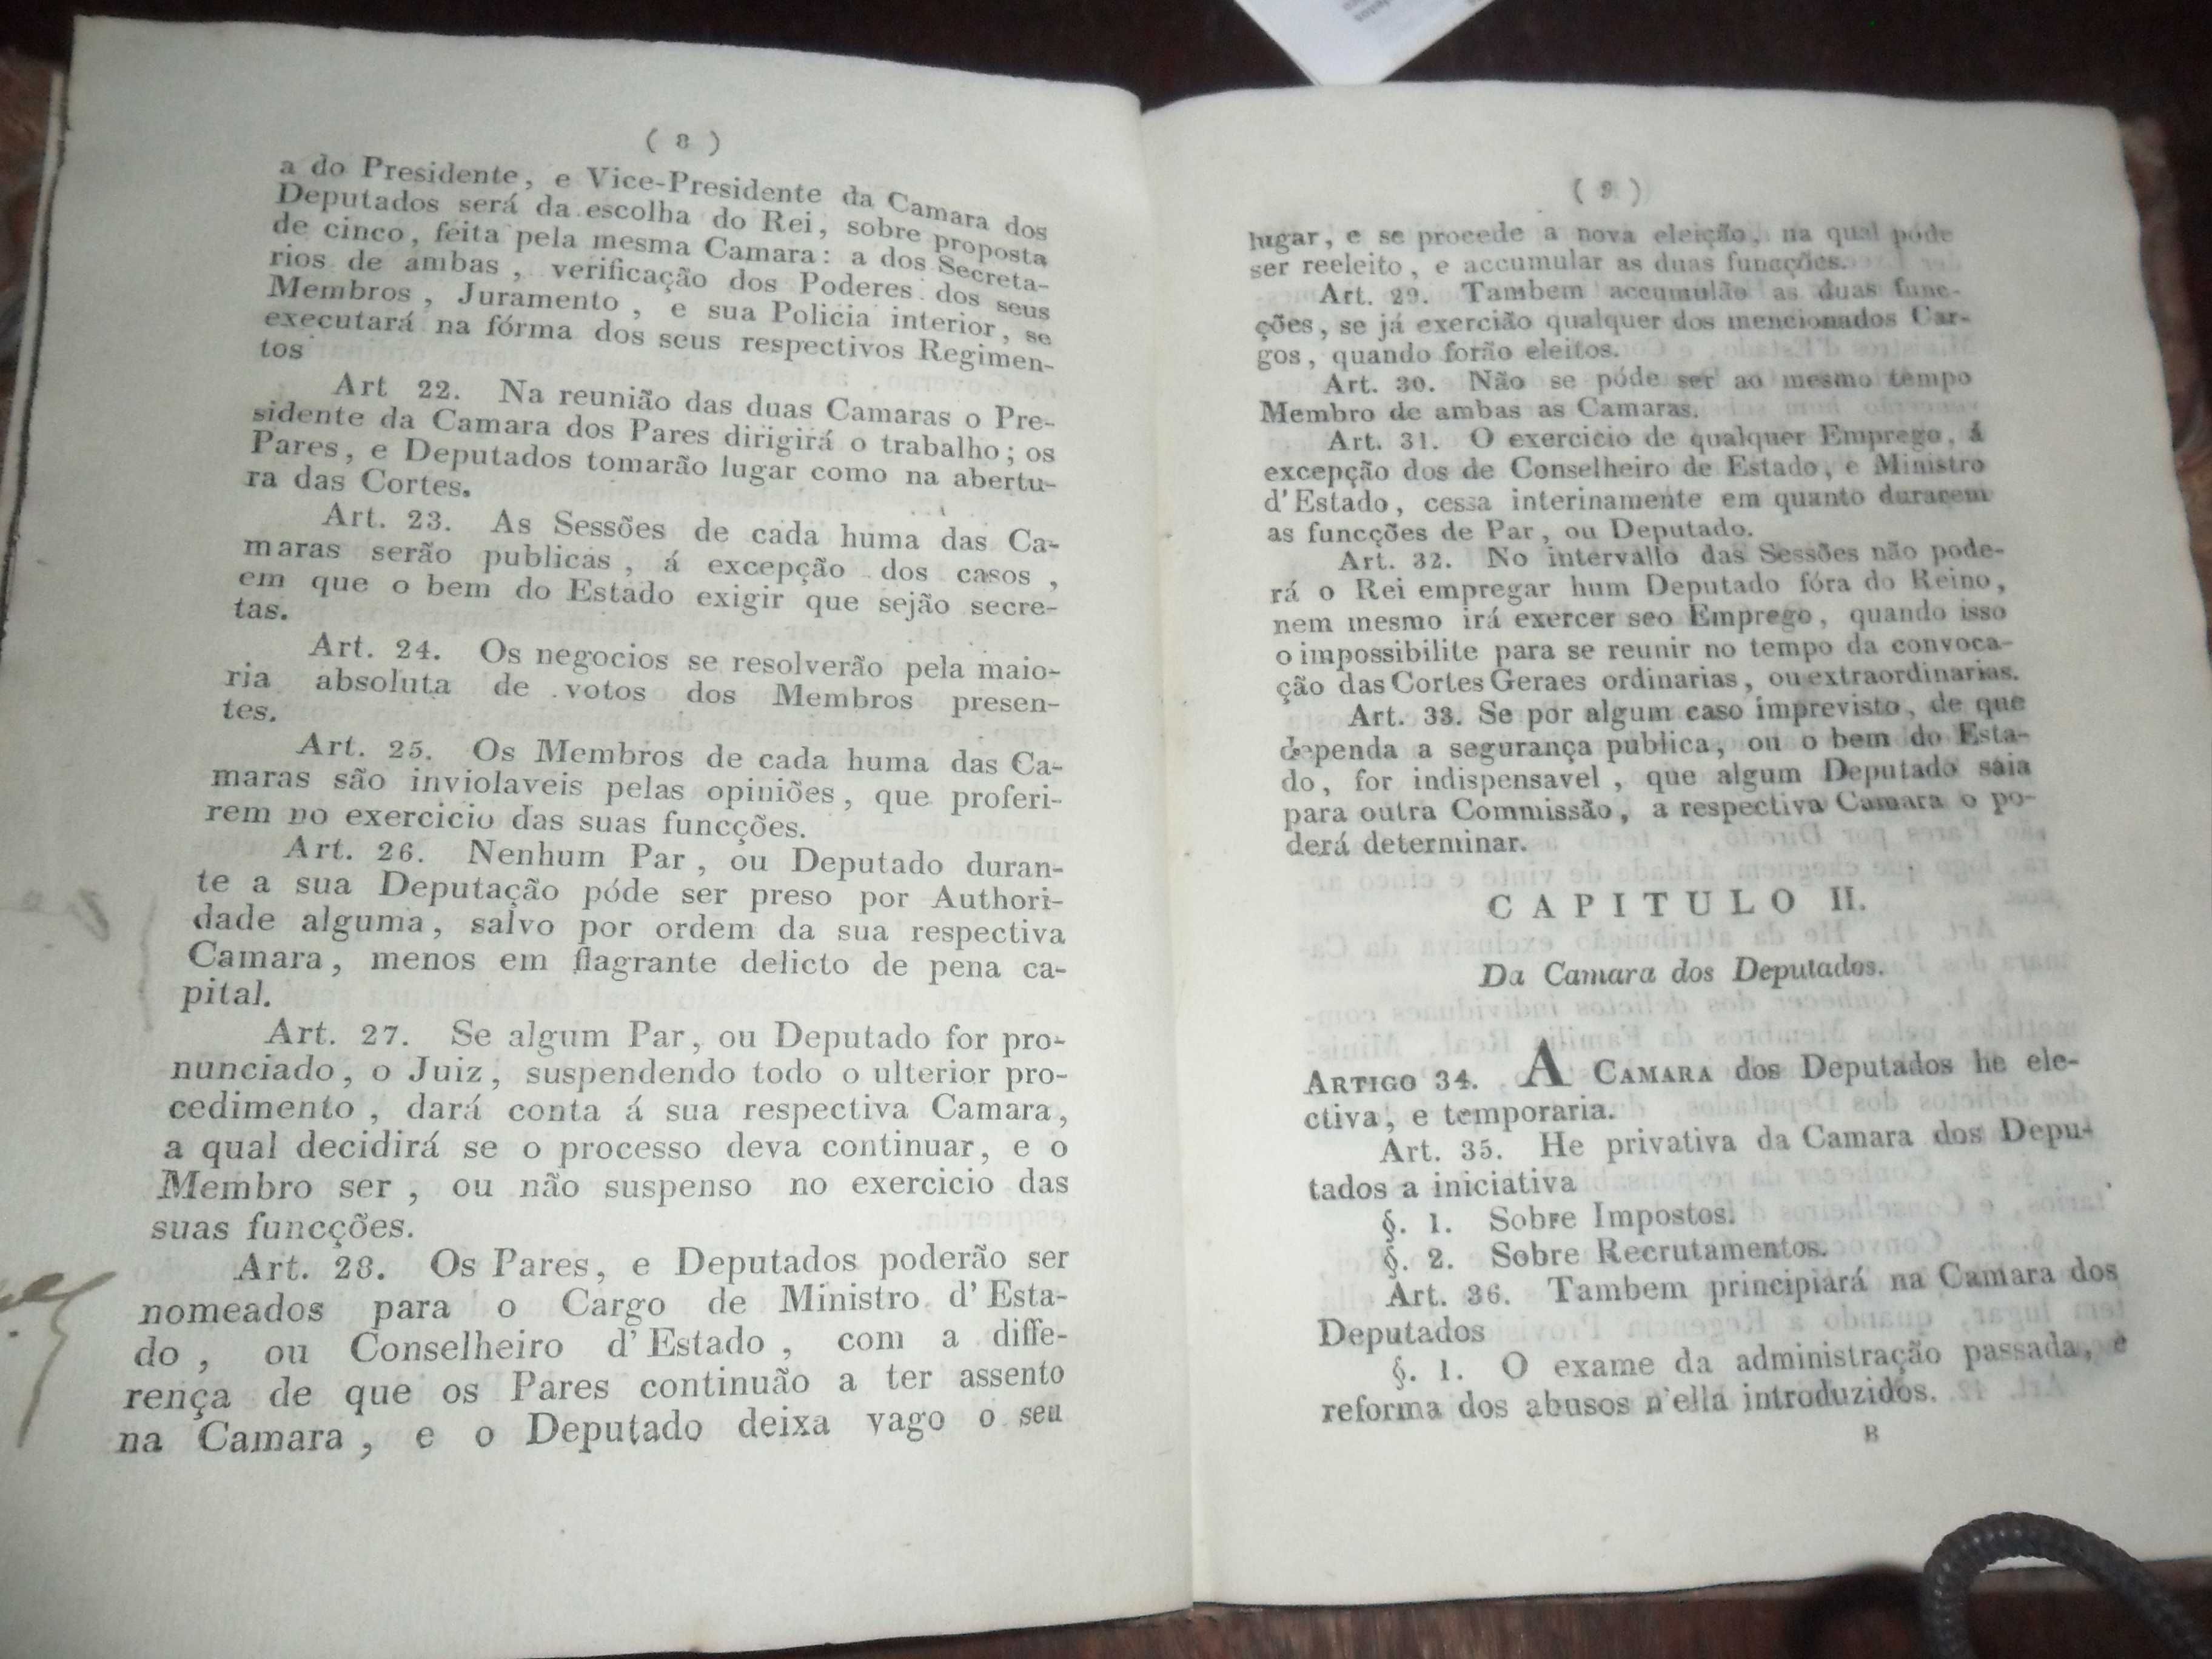 ( 8 )
a do Presidente, e Vice-Presidente da Camara dos
Deputados será da escolha do Rei, sobre proposta
de cinco, feita pela mesma Camara: a dos Secreta-
rios de ambas, verificação dos Poderes dos seus
Membros, Juramento, e sua Policia interior, se
executará na fórma dos seus respectivos Regimen-
tos
Art 22. Na reunião das duas Camaras o Pre-
sidente da Camara dos Pares dirigirá o trabalho; os
Pares, e Deputados tomarão lugar como na abertu-
ra das Cortes.
Art. 23. As Sessões de cada huma das Ca-
maras serão publicas, á excepção dos casos,
em que o bem do Estado exigir que sejão secre-
tas.
Art. 24. Os negocios se resolverão pela maio-
ria absoluta de votos dos Membros presen-
tes.
Art. 25. Os Membros de cada huma das Ca-
maras são inviolaveis pelas opiniões, que proferi-
rem no exercicio das suas funcções.
Art. 26. Nenhum Par, ou Deputado duran-
te a sua Deputação póde ser preso por Authori-
dade alguma, salvo por ordem da sua respectiva
Camara, menos em flagrante delicto de pena ca-
pital.
Art. 27. Se algum Par, ou Deputado for pro-
nunciado, o Juiz, suspendendo todo o ulterior pro-
cedimento, dará conta á sua respectiva Camara,
a qual decidirá se o processo deva continuar, e o
Membro ser, ou não suspenso no exercicio das
suas funcções.
Art. 28. Os Pares, e Deputados poderão ser
nomeados para o Cargo de Ministro d'Esta-
do, ou Conselheiro d'Estado, com a diffe-
rença de que os Pares continuão a ter assento
na Camara, e o Deputado deixa vago o seu
( 9 )
lugar, e se procede a nova eleição, na qual póde
ser reeleito, e accumular as duas funcções.
Art. 29. Tambem accumulão as duas func-
ções, se já exercião qualquer dos mencionados Car-
gos, quando forão eleitos.
Art. 30. Não se póde ser ao mesmo tempo
Membro de ambas as Camaras.
Art. 31. O exercicio de qualquer Emprego, á
excepção dos de Conselheiro de Estado, e Ministro
d'Estado, cessa interinamente em quanto durarem
as funcções de Par, ou Deputado.
Art. 32. No intervallo das Sessões não pode-
rá o Rei empregar hum Deputado fóra do Reino,
nem mesmo irá exercer seo Emprego, quando isso
o impossibilite para se reunir no tempo da convoca-
ção das Cortes Geraes ordinarias, ou extraordinarias.
Art. 33. Se por algum caso imprevisto, de que
dependa a segurança publica, ou o bem do Esta-
do, for indispensavel, que algum Deputado saia
para outra Commissão, a respectiva Camara o po-
derá determinar.
CAPITULO II.
Da Camara dos Deputados.
ARTIGO 34. A CAMARA dos Deputados he ele-
ctiva, e temporaria.
Art. 35. He privativa da Camara dos Depu-
tados a iniciativa
§. 1. Sobre Impostos.
§. 2. Sobre Recrutamentos.
Art. 36. Tambem principiará na Camara dos
Deputados
§. 1. O exame da administração passada, e
reforma dos abusos n'ella introduzidos.
B